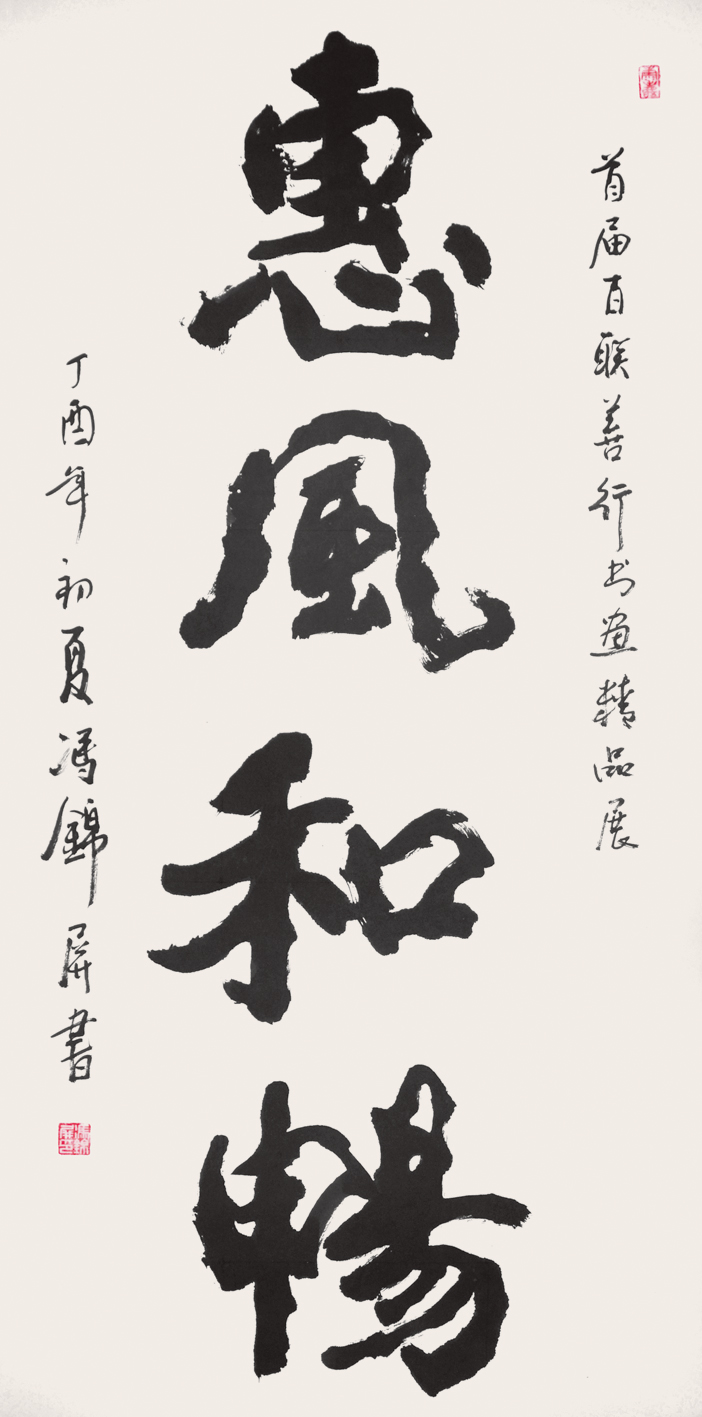 首届百联善行书画精品展
惠風和暢
丁酉年初夏馮錦屏書